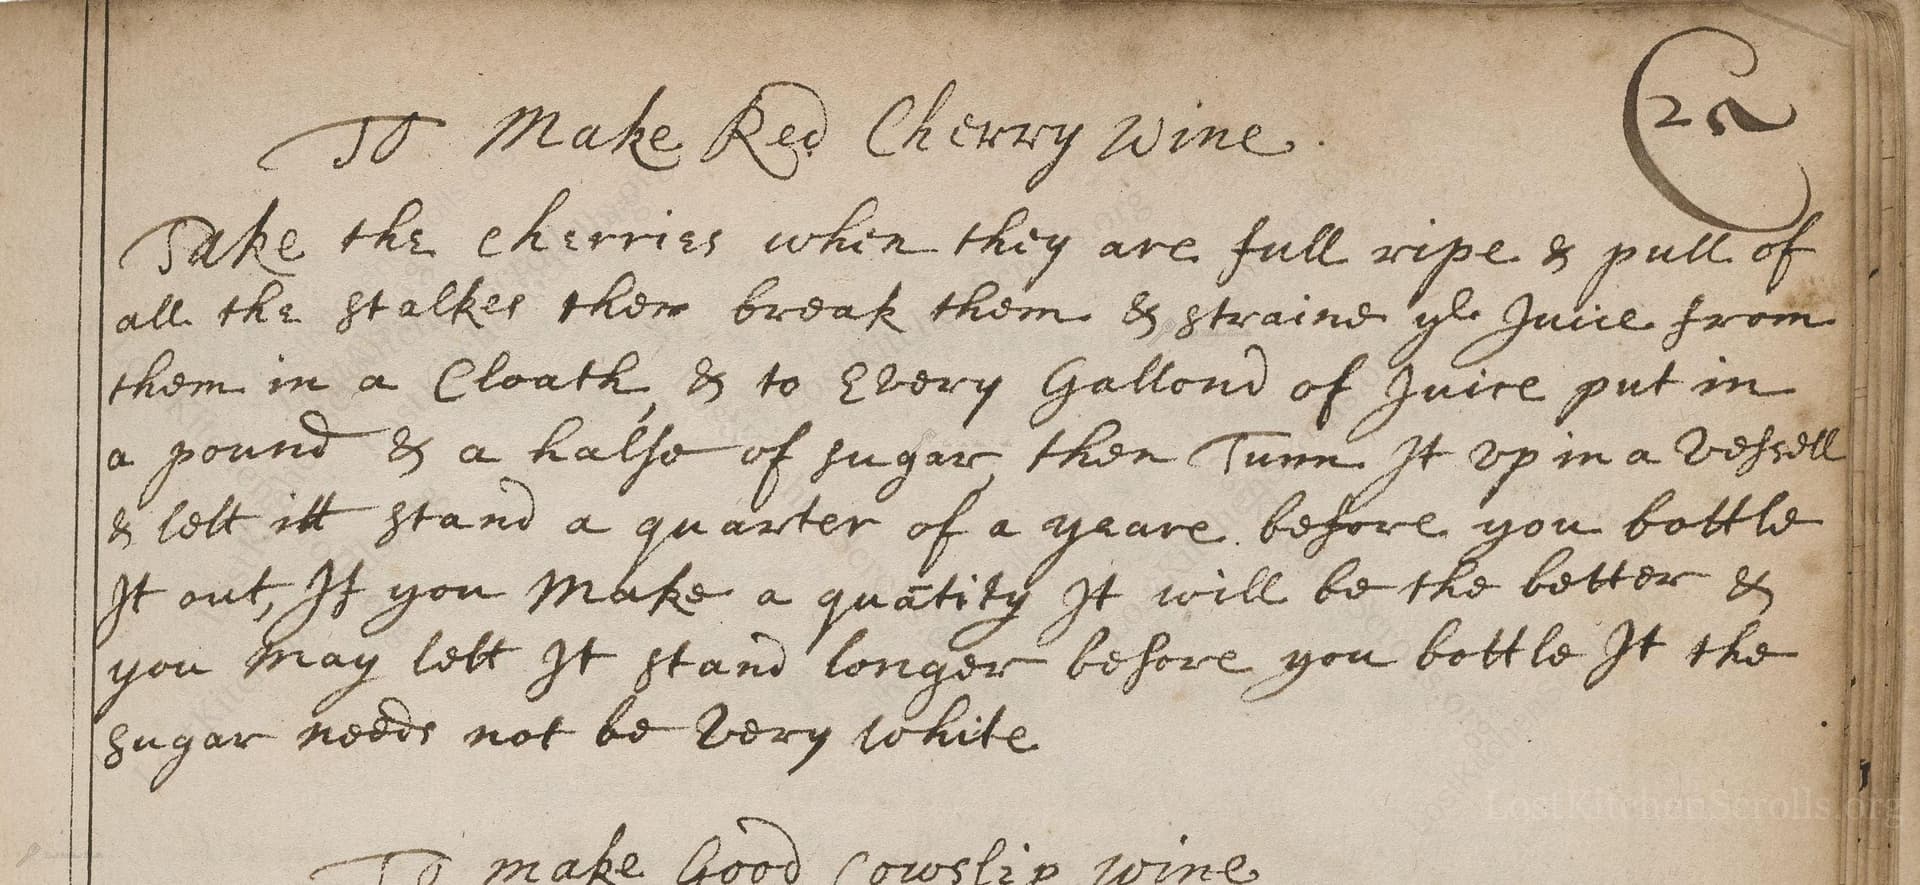 25
To Make Red Cherry Wine.
Take the cherries when they are full ripe & pull of
all the stalkes then break them & straine ye Juice from
them in a Cloath, & to Every Gallond of Juice put in
a pound & a halfe of sugar, then Tunn It Vp in a Vessell
& lett itt stand a quarter of a yeare before you bottle
It out, If you Make a quātity It will be the better &
you may lett It stand longer before you bottle It the
sugar needs not be Very white
LostKitchenScrolls.org
To make Good Cowslip wine